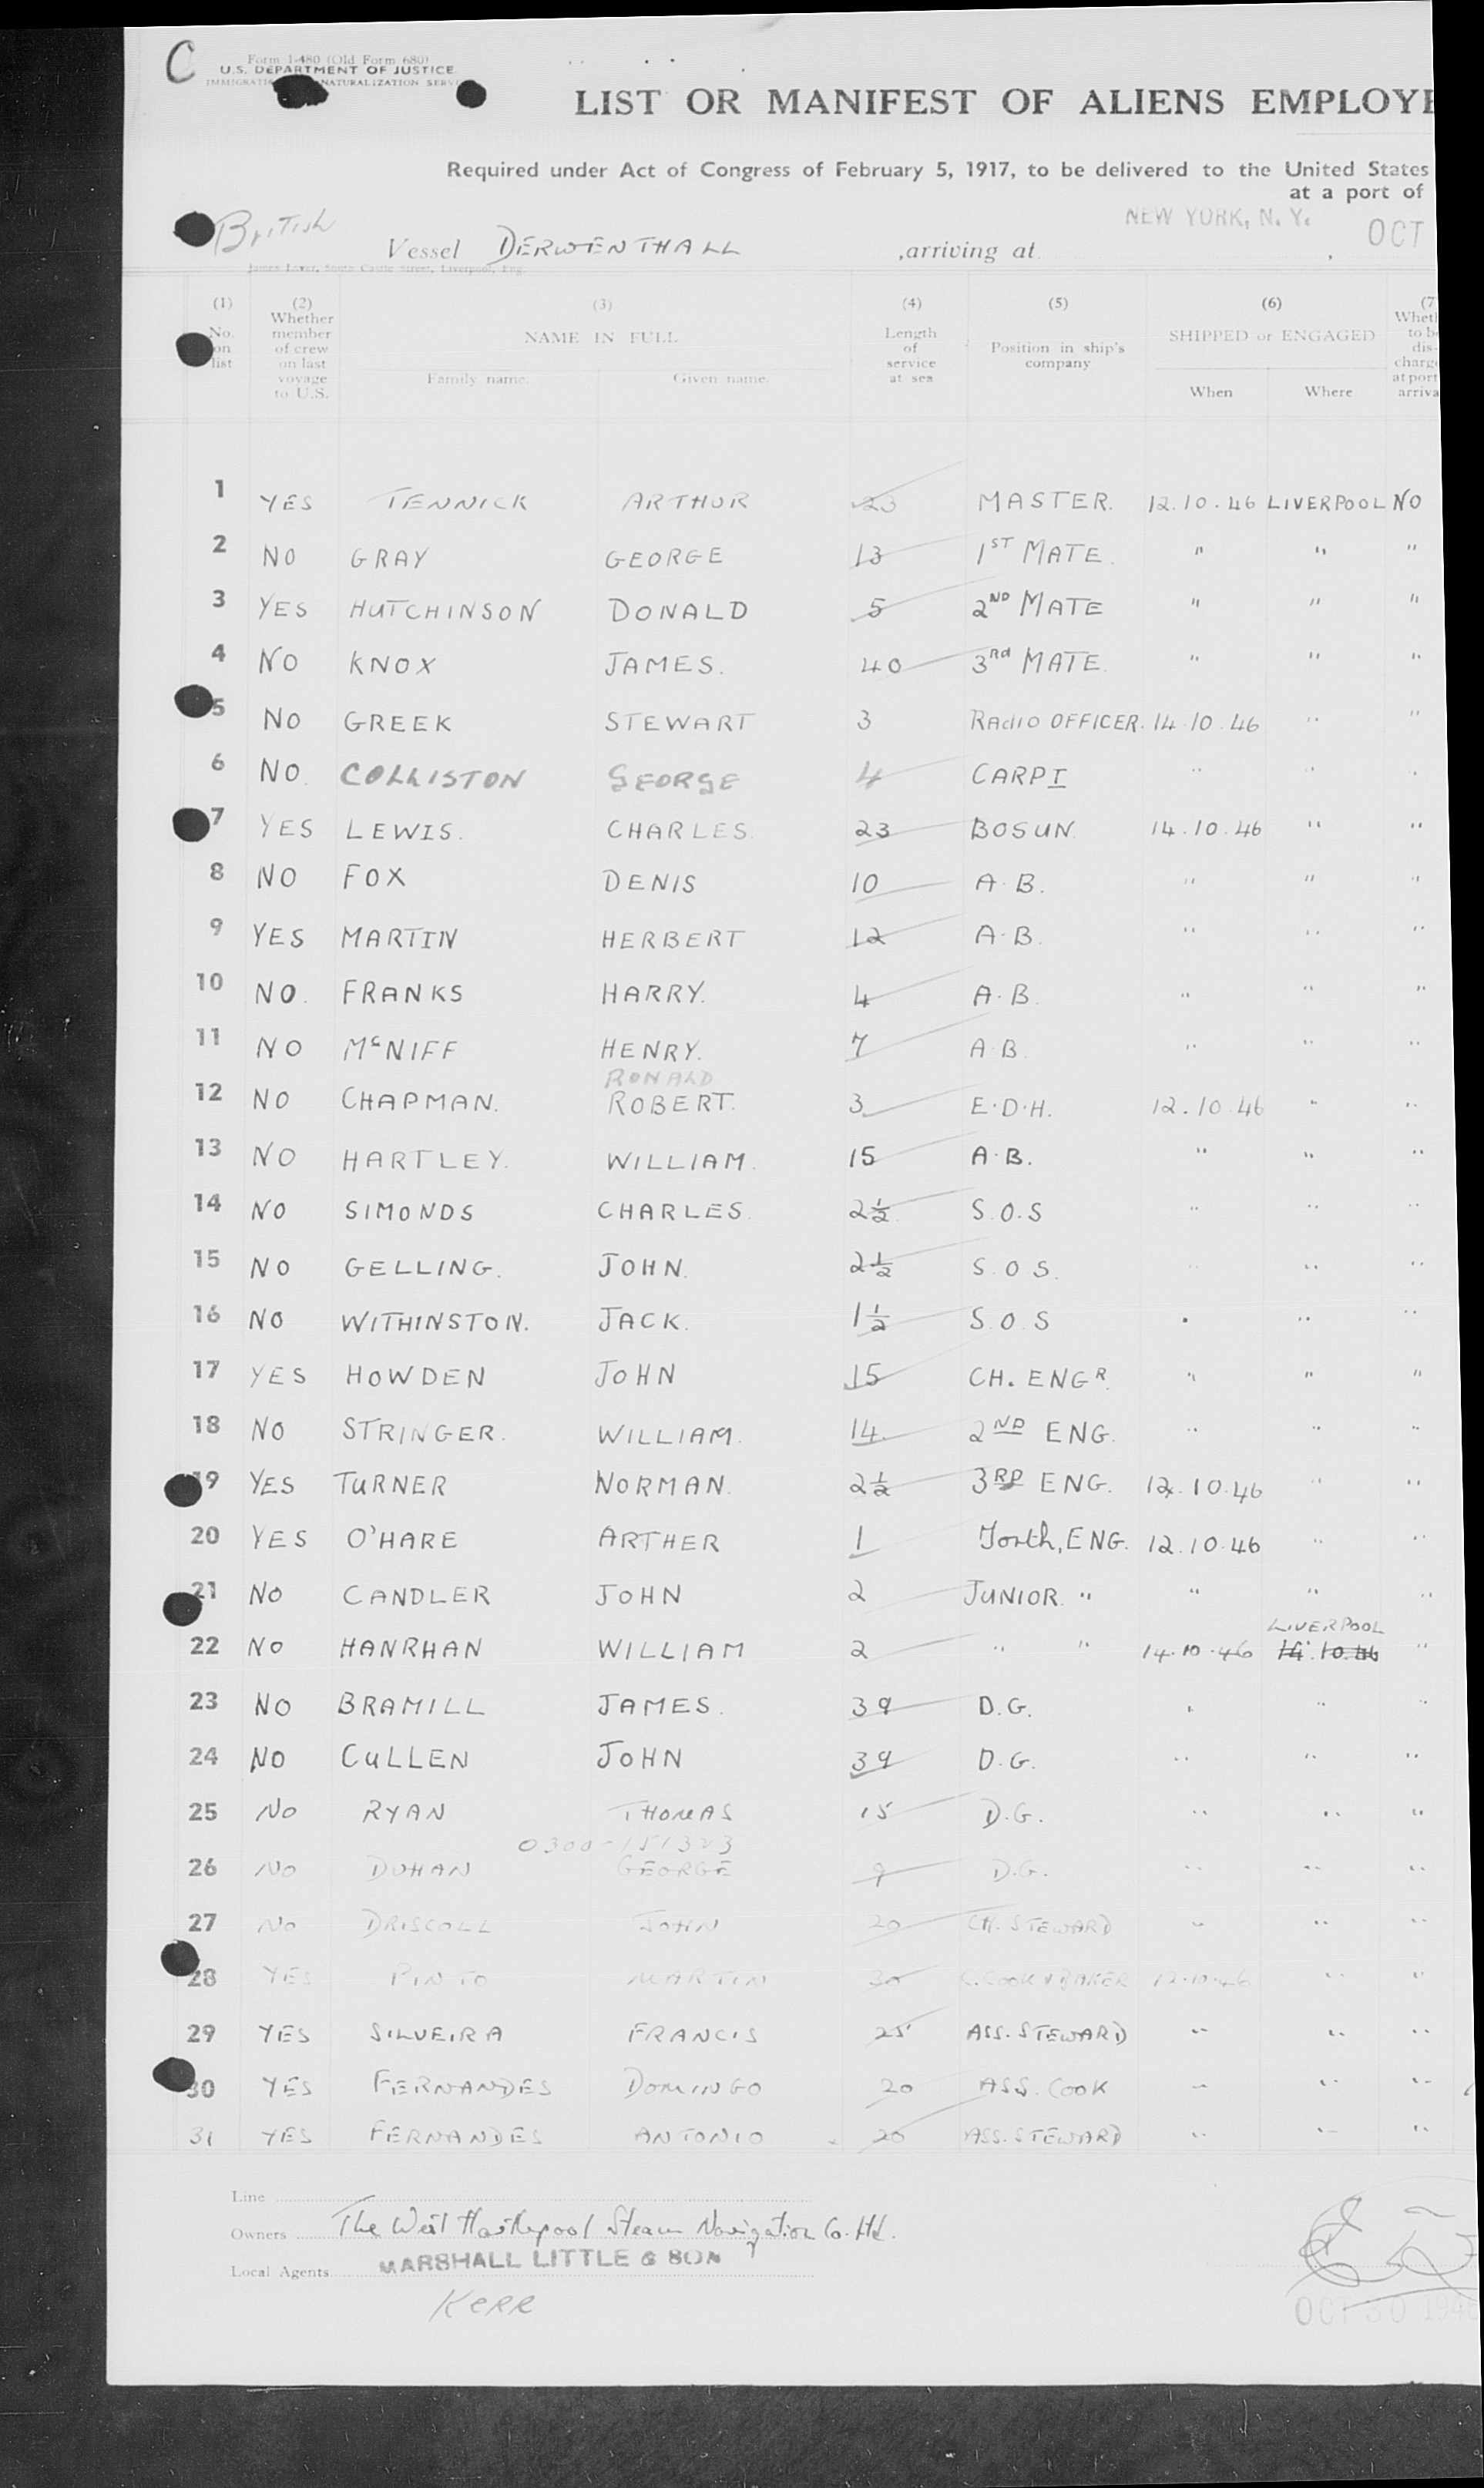 C
Form I-480 (Old Form 680)
U.S. DEPARTMENT OF JUSTICE
NATURALIZATION
LIST OR MANIFEST OF ALIENS EMPLOYE
Required under Act of Congress of February 5, 1917, to be delivered to the United States
at a port of
British Vessel DERWENTHALL ,arriving at NEW YORK, N.Y. , OCT
James Laver, South Castle Street, Liverpool, Eng.
(1) No. on list
(2) Whether member of crew on last voyage to U.S.
(3) NAME IN FULL Family name. Given name.
(4) Length of service at sea
(5) Position in ship's company
(6) SHIPPED or ENGAGED When Where
1 YES TENNICK ARTHUR 23 MASTER. 12.10.46 LIVERPOOL NO
2 NO GRAY GEORGE 13 1ST MATE. " " "
3 YES HUTCHINSON DONALD 5 2ND MATE " " "
4 NO KNOX JAMES. 40 3Rd MATE. " " "
5 NO GREEK STEWART 3 RAdIO OFFICER. 14.10.46 " "
6 NO. COLLISTON GEORGE 4 CARPT " " "
7 YES LEWIS. CHARLES. 23 BOSUN. 14.10.46 " "
8 NO FOX DENIS 10 A.B. " " "
9 YES MARTIN HERBERT 12 A.B. " " "
10 NO. FRANKS HARRY. 4 A.B. " " "
11 NO McNIFF HENRY. 7 A.B. " " "
RONALD
12 NO CHAPMAN. ROBERT. 3 E.D.H. 12.10.46 " "
13 NO HARTLEY. WILLIAM. 15 A.B. " " "
14 NO SIMONDS CHARLES. 2½ S.O.S " " "
15 NO GELLING. JOHN. 2½ S.O.S. " " "
16 NO WITHINSTON. JACK. 1½ S.O.S " " "
17 YES HOWDEN JOHN 15 CH. ENGR. " " "
18 NO STRINGER. WILLIAM. 14. 2ND ENG. " " "
19 YES TURNER NORMAN. 2½ 3RD ENG. 12.10.46 " "
20 YES O'HARE ARTHER 1 Forth, ENG. 12.10.46 " "
21 NO CANDLER JOHN 2 JUNIOR " " " "
LIVERPOOL
22 NO HANRHAN WILLIAM 2 " " 14.10.46 14.10.46 "
23 NO BRAMILL JAMES. 39 D.G. " " "
24 NO CULLEN JOHN 39 D.G. " " "
25 NO RYAN THOMAS 15 D.G. " " "
0300-151323
26 NO DOHAN GEORGE 9 D.G. " " "
27 NO DRISCOLL JOHN 20 CH. STEWARD " " "
28 YES PINTO MARTIN 30 S.COOK & BAKER 12.10.46 " "
29 YES SILVEIRA FRANCIS 25 ASS. STEWARD " " "
30 YES FERNANDES DOMINGO 20 ASS. COOK " " "
31 YES FERNANDES ANTONIO 20 ASS. STEWARD " " "
Line
Owners The West Hartlepool Steam Navigation Co. Ltd.
Local Agents MARSHALL LITTLE & SON
KERR
OCT 30 194